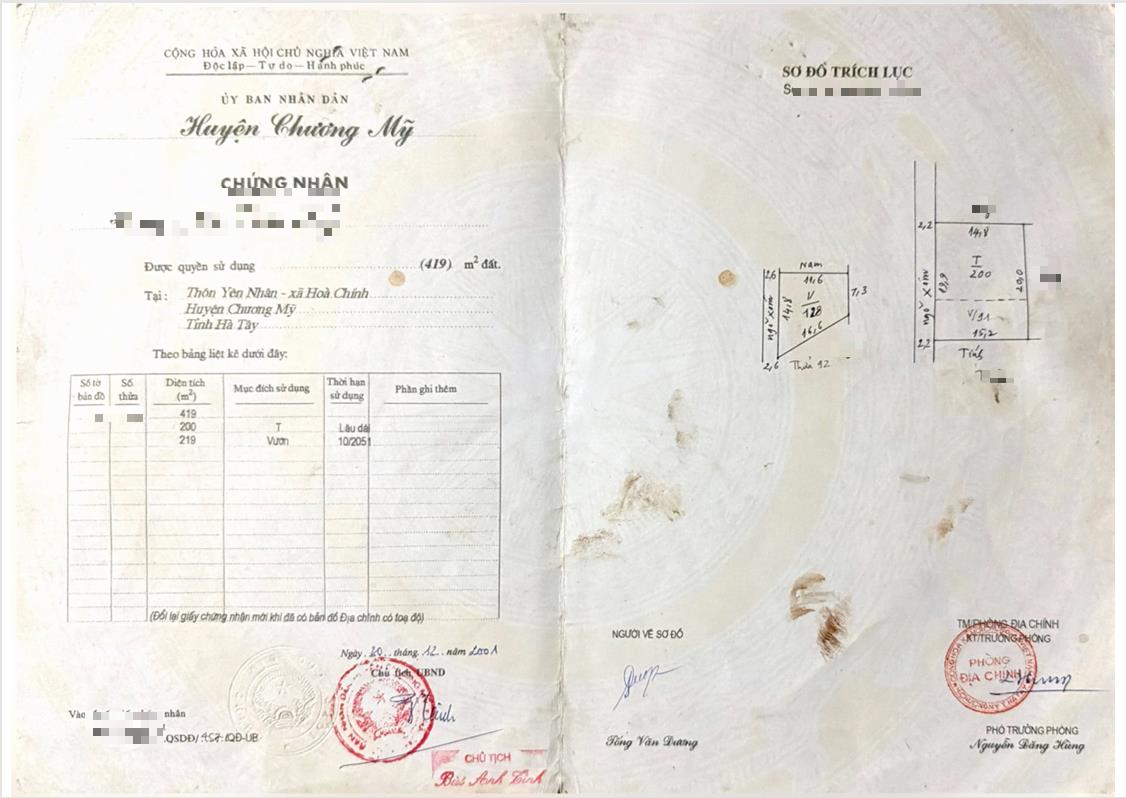 CỘNG HÒA XÃ HỘI CHỦ NGHĨA VIỆT NAM
Độc lập — Tự do — Hạnh phúc
ỦY BAN NHÂN DÂN
Huyện Chương Mỹ
CHỨNG NHẬN
Được quyền sử dụng (419) m² đất.
Tại : Thôn Yên Nhân - xã Hoà Chính
Huyện Chương Mỹ
Tỉnh Hà Tây
Theo bảng liệt kê dưới đây:
Số tờ bản đồ Số thửa Diện tích (m²) Mục đích sử dụng Thời hạn sử dụng Phần ghi thêm
419
200 T Lâu dài
219 Vườn 10/2051
(Đổi lại giấy chứng nhận mới khi đã có bản đồ Địa chính có toạ độ)
Ngày 20 tháng 12 năm 2001
Chủ tịch UBND
Vào nhân
QSDĐ/ QĐ-UB
CHỦ TỊCH
SƠ ĐỒ TRÍCH LỤC
Nam
2,6 11,6
ngõ xóm 14,8 V 128 7,3
16,6
2,6 Thửa 92
2,2 14,8
T
200
ngõ xóm 19,9 20,0
V/91
15,2
2,2 Tính
NGƯỜI VẼ SƠ ĐỒ
Tống Văn Dương
TM/PHÒNG ĐỊA CHÍNH
KT/TRƯỞNG PHÒNG
PHÒNG
ĐỊA CHÍNH
PHÓ TRƯỞNG PHÒNG
Nguyễn Đăng Hùng